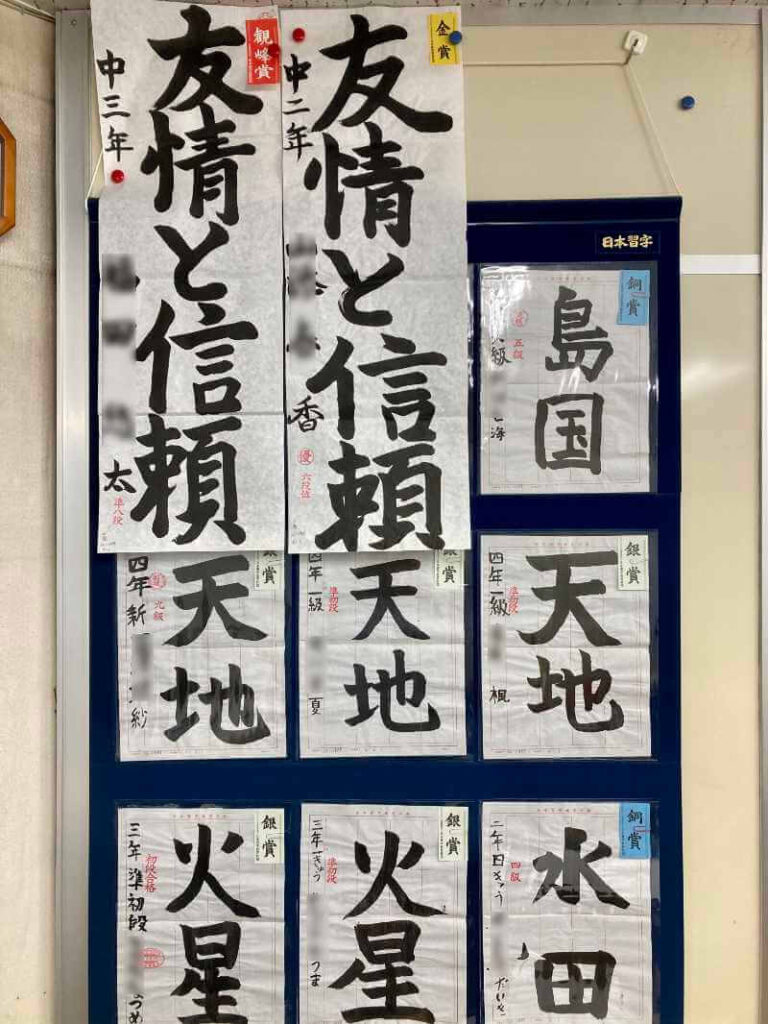 観峰賞
友情と信頼
中三年
太
準八段
金賞
友情と信頼
中二年
香
優
六段位
日本習字
銅賞
島国
五級
海
銀賞
天地
四年新
九級
紗
銀賞
天地
四年一級
準初段
夏
銀賞
天地
四年一級
準初段
楓
銀賞
火星
三年準初段
初段合格
うめ
銀賞
火星
三年一きゅう
準初段
つま
銅賞
水田
二年
きゅう
四級
だいき